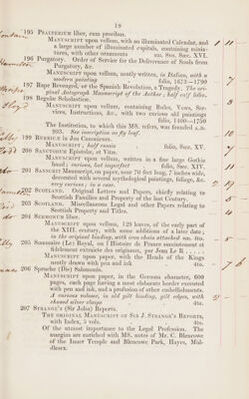 18
195 PSALTERIUM liber, cum precibus.
MANUSCRIPT upon vellum, with an illuminated Calendar, and
a large number of illuminated capitals, containing minia-
tures, with other ornaments sm. 8vo. Sæc. XV.
196 Purgatory. Order of Service for the Deliverance of Souls from
Purgatory, &c.
MANUSCRIPT upon vellum, neatly written, in Italian, with a
modern painting folio, 1622—1790
197 Rape Revenged, or the Spanish Revolution, a Tragedy. The ori-
ginal Autograph Manuscript of the Author; half calf
198 Regulæ Scholasticæ.
MANUSCRIPT upon vellum, containing Rules, Vows, Ser-
vices, Instructions, &c., with two curious old paintings
folio, 1400—1750
The Institution, to which this MS. refers, was founded A.D.
See inscription on fly leaf.
199 in Jus Canonicum.
MANUSCRIPT, half russia folio, Sæc. XV.
200 SANCTORUM Epistolæ, et Vitæ.
MANUSCRIPT upon vellum, written in a fine large Gothic
hand; curious, but imperfect folio, Sæc. XIV.
201 SANSCRIT MANUSCRIPT, on paper, near 70 feet long, 7 inches wide,
decorated with several mythological paintings, foliage, &c.
very curious; in a case.
202 SCOTLAND. Original Letters and Papers, chiefly relating to
Scottish Families and Property of the last Century.
203 SCOTLAND. Miscellaneous Legal and other Papers relating to
Scottish Property and Titles.
204 SERMONUM liber.
MANUSCRIPT upon vellum, 128 leaves, of the early part of
the XIII. century, with some additions of a later date;
in the original binding, with iron chain attached
205 Sommaire (Le) Royal, ou l'Histoire de France succinctement et
fidelement extraite des originaux, par Jean Le R......
MANUSCRIPT upon paper, with the Heads of the Kings
neatly drawn with pen and ink 4to.
206 Spruche (Die) Salomonis.
MANUSCRIPT upon paper, in the German character, 600
pages, each page having a most elaborate border executed
with pen and ink, and a profusion of other embellishments.
A curious volume, in old gilt binding, gilt edges, with
chased silver clasps 4to.
207 STRANGE'S (Sir John) Reports.
THE ORIGINAL MANUSCRIPT OF SIR J. STRANGE'S REPORTS,
with Index, 5 vols. 4to.
Of the utmost importance to the Legal Profession. The
margins are enriched with MS. notes of Mr. C. Blencowe
of the Inner Temple and Blencowe Park, Hayes, Mid-
dlesex.